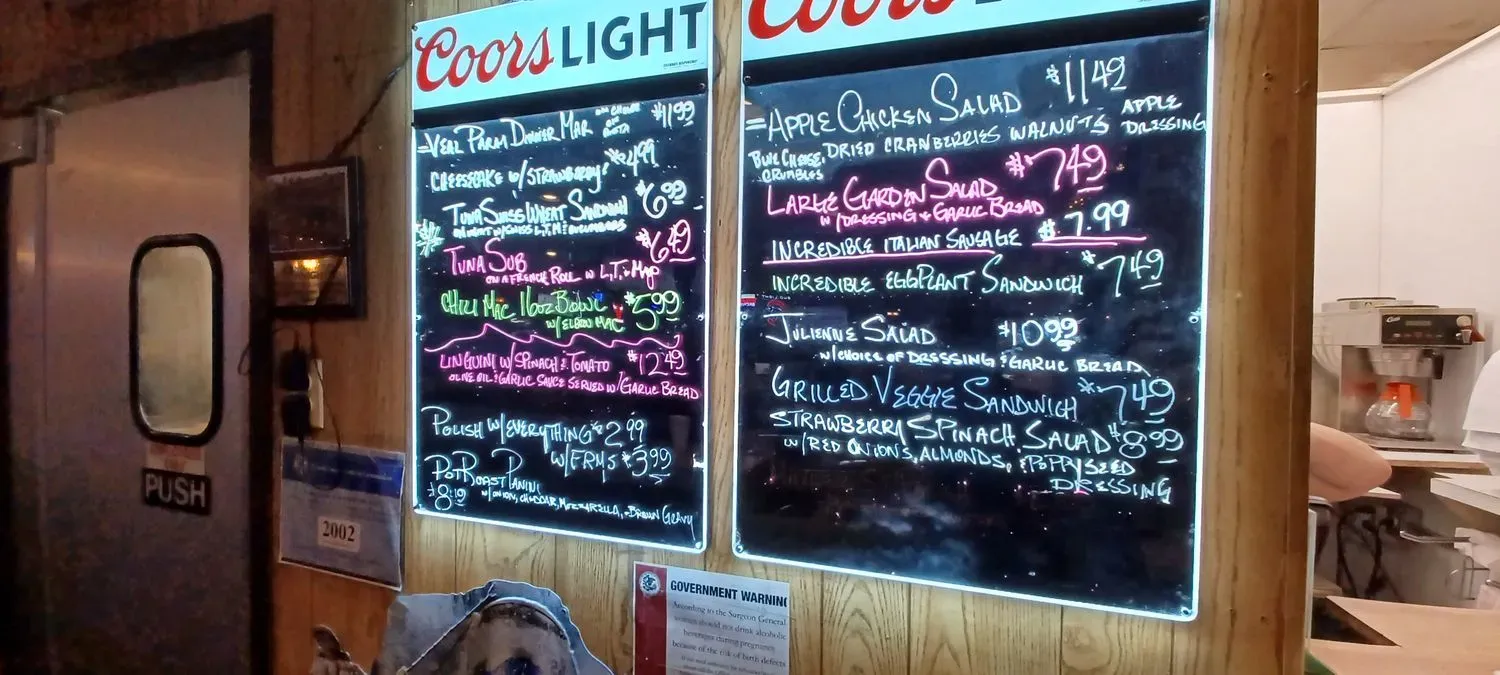 Coors LIGHT
VEAL PARM DINNER MAR $11.99
CHEESECAKE W/STRAWBERRY $4.99
TUNA SWISS WHEAT SANDWICH $6.99
TUNA SUB $6.49
ON A FRENCH ROLL W L,T, & MAYO
CHILI MAC 16oz BOWL $5.99
W/ELBOW MAC
LINGUINI W/SPINACH & TOMATO $12.49
OLIVE OIL & GARLIC SAUCE SERVED W/GARLIC BREAD
POLISH W/EVERYTHING $2.99
W/FRYS $3.99
POT ROAST PANINI
$8.19 W/ONION, CHEDDAR, MOZZARELLA, & BROWN GRAVY
Coors
APPLE CHICKEN SALAD $11.49
DRIED CRANBERRIES WALNUTS APPLE DRESSING
CRUMBLES
LARGE GARDEN SALAD $7.49
W/DRESSING & GARLIC BREAD
INCREDIBLE ITALIAN SAUSAGE $7.99
INCREDIBLE EGGPLANT SANDWICH $7.49
JULIENNE SALAD $10.99
W/CHOICE OF DRESSING & GARLIC BREAD
GRILLED VEGGIE SANDWICH $7.49
STRAWBERRY SPINACH SALAD $8.99
W/RED ONIONS, ALMONDS, & POPPYSEED
DRESSING
PUSH
2002
GOVERNMENT WARNING
According to the Surgeon General,
women should not drink alcoholic
beverages during pregnancy
because of the risk of birth defects